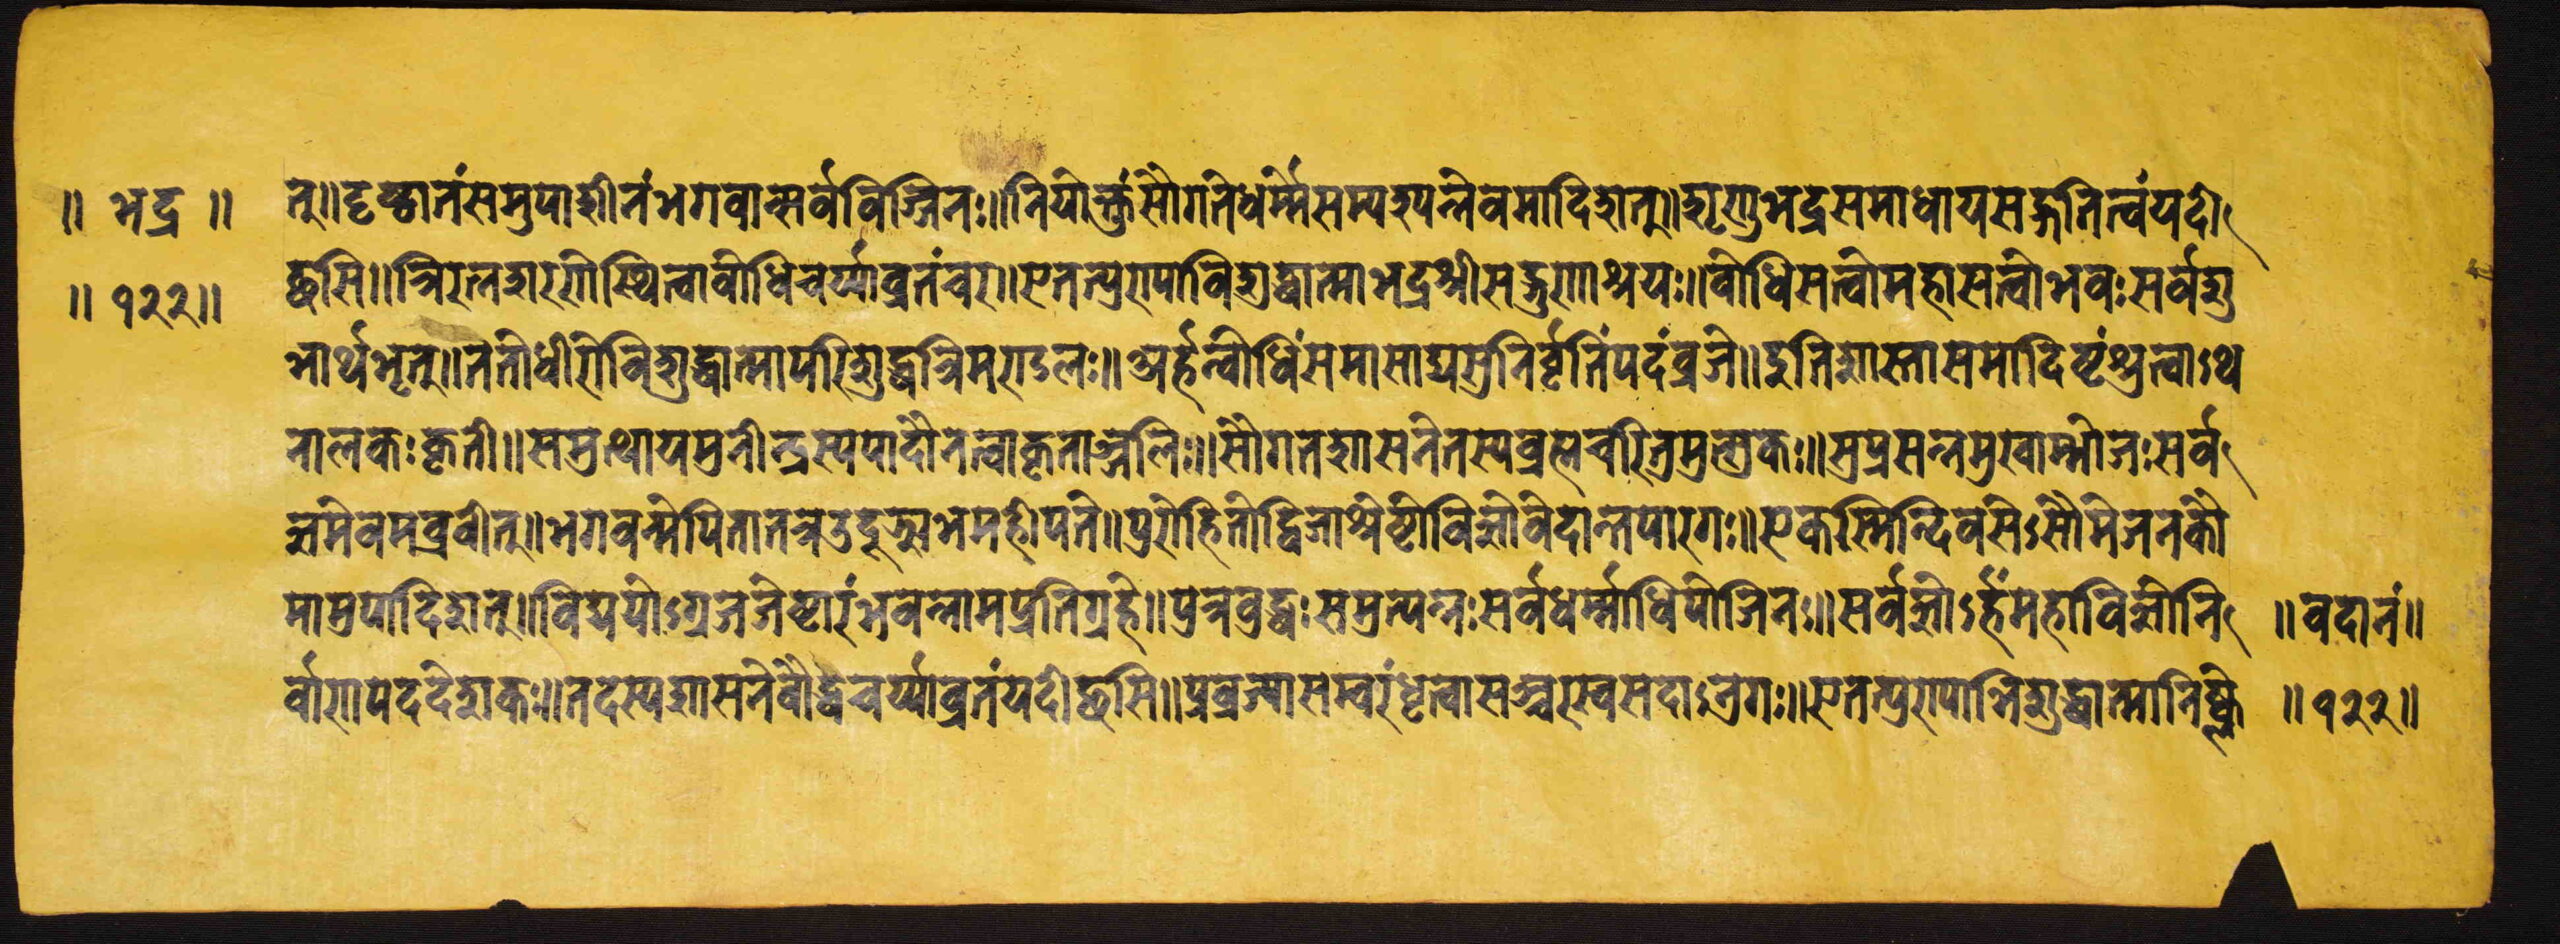 ॥ भद्र ॥
त्॥दृष्ट्वा तं समुपाशीनं भगवान्सर्वविज्जिनः॥नियोक्तुं सौगते धर्म्मे सम्पश्यन्नेवमादिशत्॥शृणु भद्र समाधाय सद्गतिं त्वं यदी
॥ १२२॥
च्छसि॥त्रिरत्नशरणे स्थित्वा बोधिचर्य्याव्रतं चर॥एतत्पुण्याविशुद्धात्मा भद्रश्रीसद्गुणाश्रयः॥बोधिसत्वो महासत्वो भवः सर्वशु
भार्थभृत्॥ततो धीरो विशुद्धात्मा परिशुद्धत्रिमण्डलः॥अर्हत्वोधिं समासाद्य सुनिर्वृतिं पदं व्रजे॥इति शास्ता समादिष्टं श्रुत्वाऽथ
बालकः कृती॥समुत्थाय मुनीन्द्रस्य पादौ नत्वा कृताञ्जलिः॥सौगतशासने तस्य ब्रह्मचरितुमुत्सुकः॥सुप्रसन्नमुखाम्भोजः सर्व
ज्ञमेवमब्रवीत्॥भगवन्मे पिता तत्र उदूज्ञाभमहीपते॥पुरोहितो द्विजाश्रेष्टो विज्ञो वेदान्तपारगः॥एकस्मिन्दिवसेऽसौ मे जनको
मामुपादिशत्॥विद्ययोऽग्रजजेष्टारं भवन्नाम प्रतिग्रहे॥पुत्र बुद्धः समुत्पन्नः सर्वधर्म्माधिपो जिनः॥सर्वज्ञोऽर्हं महाविज्ञो नि
॥वदानं॥
र्वाणपददेशकः॥तदस्य शासने बौद्धचर्य्याव्रतं यदीच्छसि॥प्रव्रज्यासम्वरं धृत्वा सञ्चरस्व सदाऽनुगः॥एतत्पुण्याभिशुद्धात्मा निष्क्ले
॥१२२॥